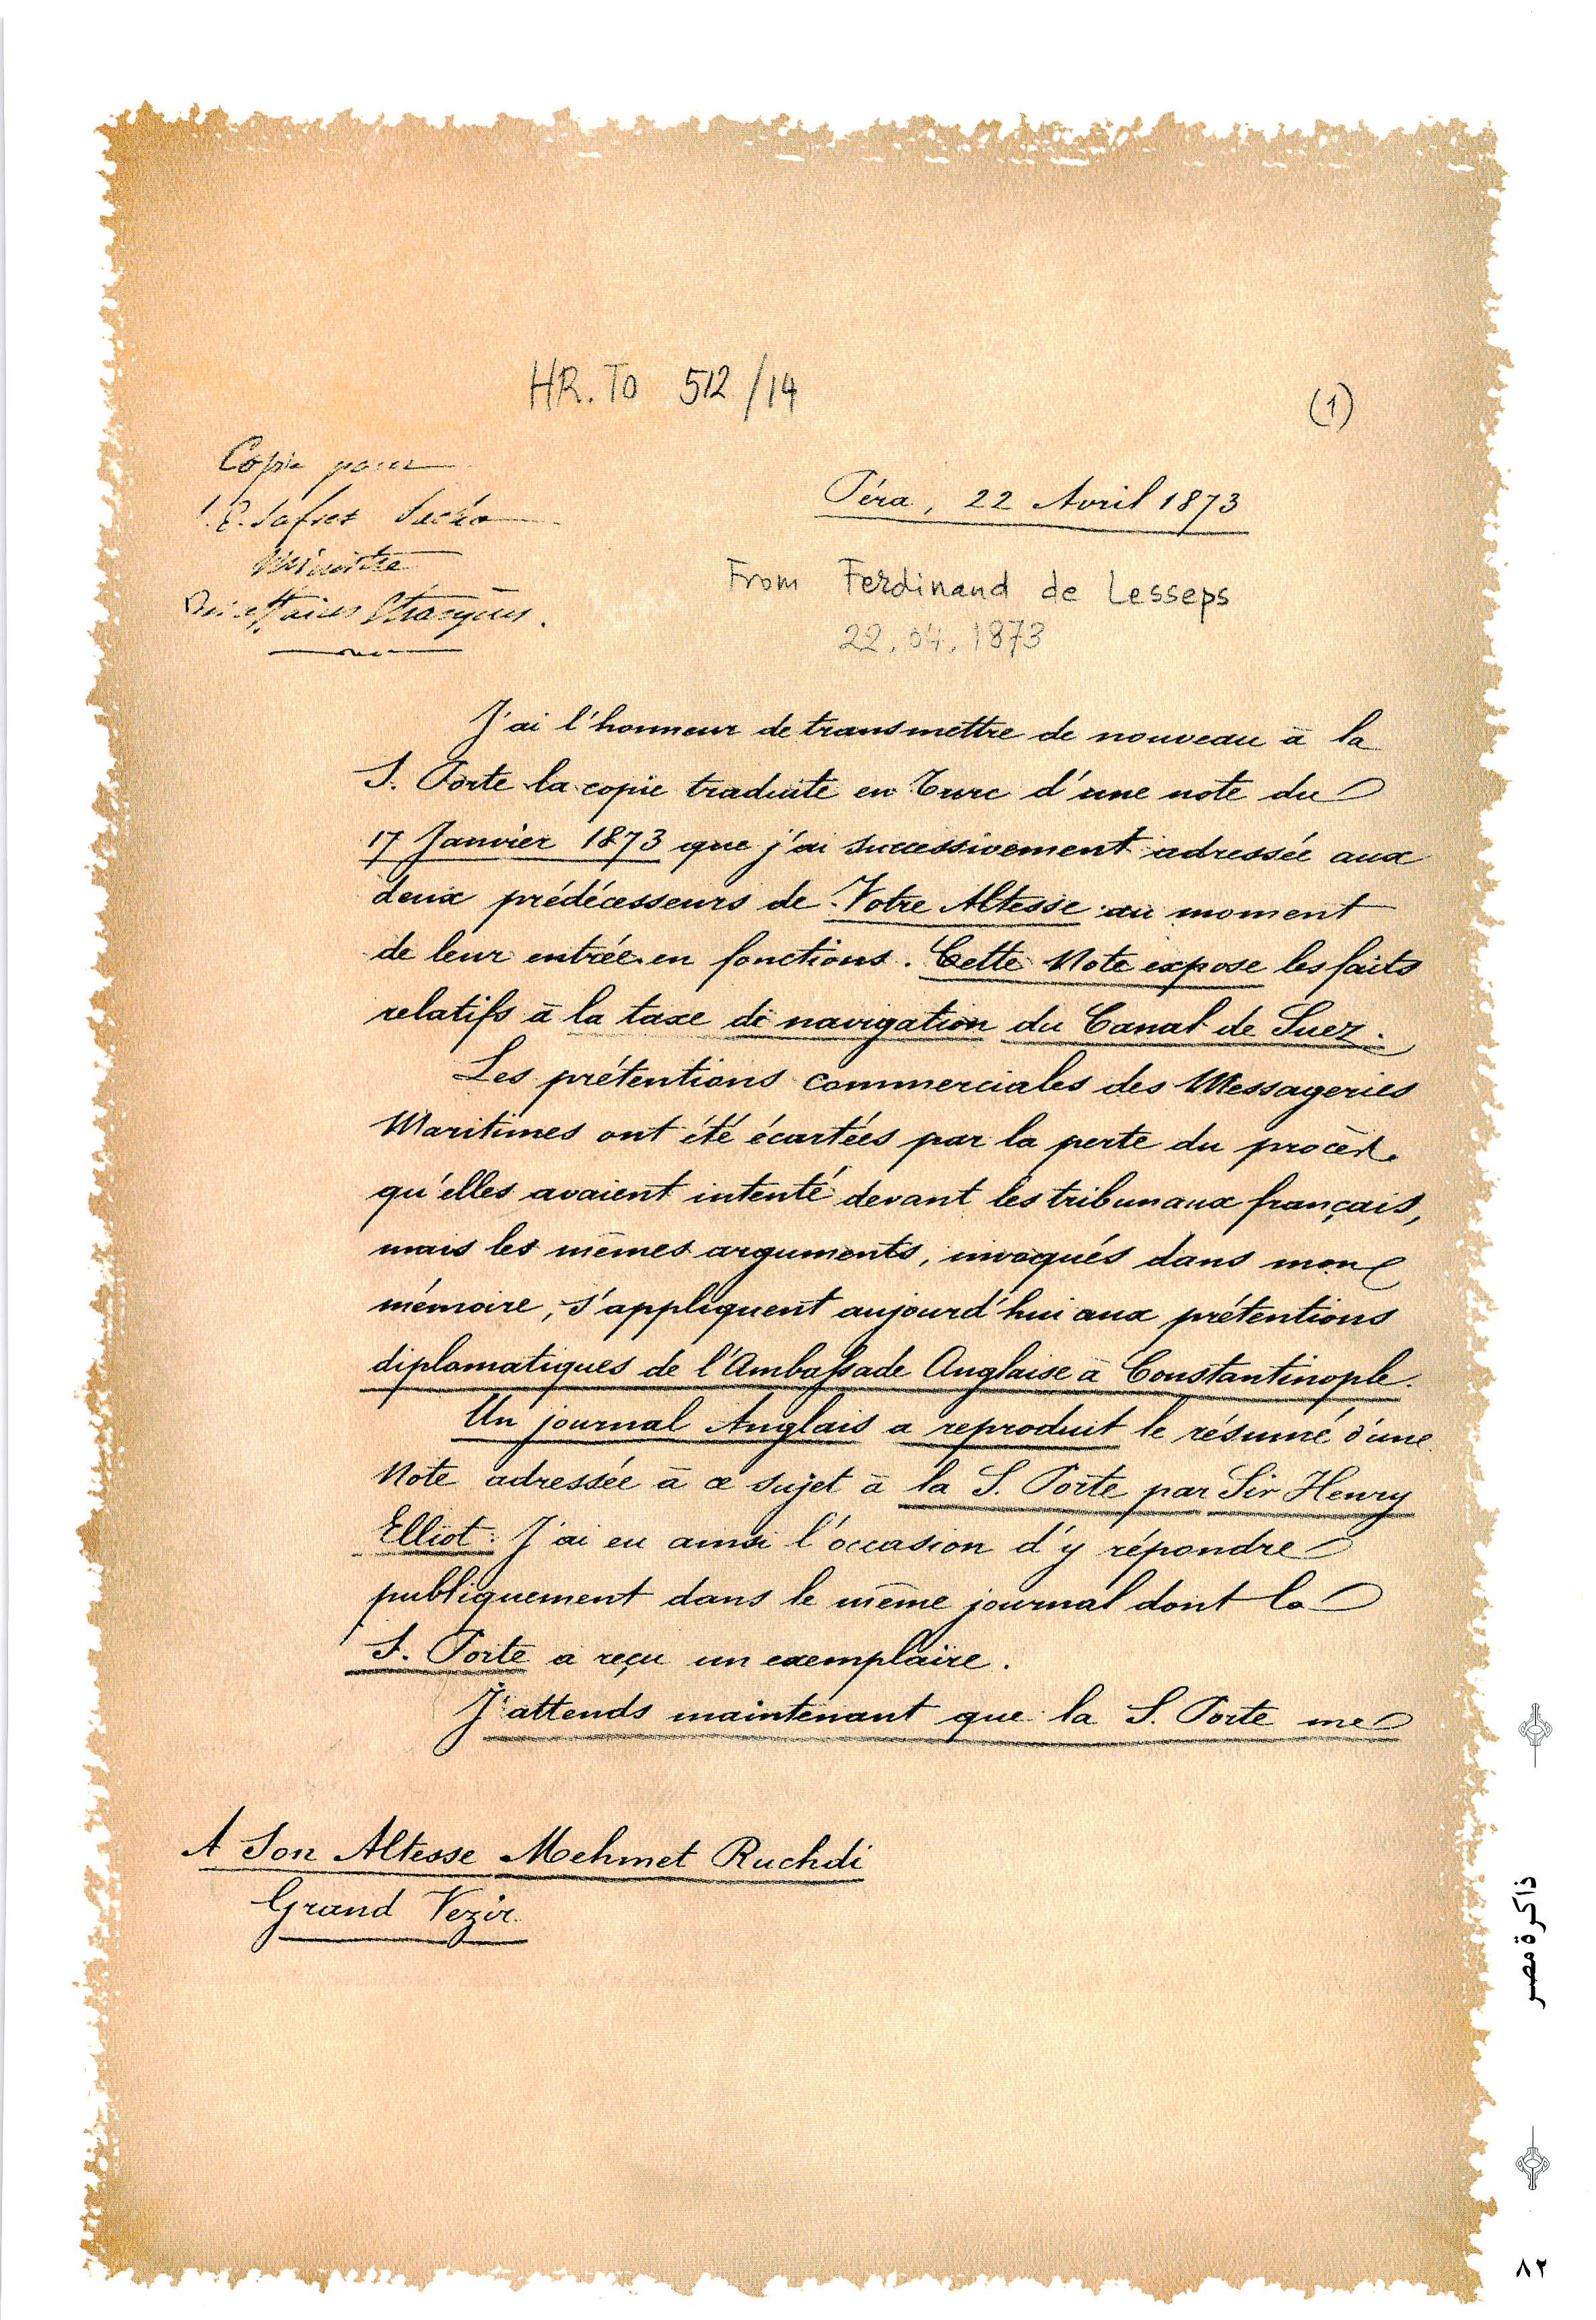 HR. TO 512/14
(1)
Copie pour
S. E. Safvet Pacha
Ministre
Des affaires Etrangères.
Péra, 22 Avril 1873
From Ferdinand de Lesseps
22.04.1873
J'ai l'honneur de transmettre de nouveau à la
S. Porte la copie traduite en Turc d'une note du
17 Janvier 1873 que j'ai successivement adressée aux
deux prédécesseurs de Votre Altesse au moment
de leur entrée en fonctions. Cette Note expose les faits
relatifs à la taxe de navigation du Canal de Suez.
Les prétentions commerciales des Messageries
Maritimes ont été écartées par la perte du procès
qu'elles avaient intenté devant les tribunaux français,
mais les mêmes arguments, invoqués dans mon
mémoire, s'appliquent aujourd'hui aux prétentions
diplomatiques de l'Ambassade Anglaise à Constantinople.
Un journal Anglais a reproduit le résumé d'une
Note adressée à ce sujet à la S. Porte par Sir Henry
Elliot. J'ai eu ainsi l'occasion d'y répondre
publiquement dans le même journal dont la
S. Porte a reçu un exemplaire.
J'attends maintenant que la S. Porte me
A Son Altesse Mehmet Ruchdi
Grand Vezir
ذاكرة مصر
٨٢